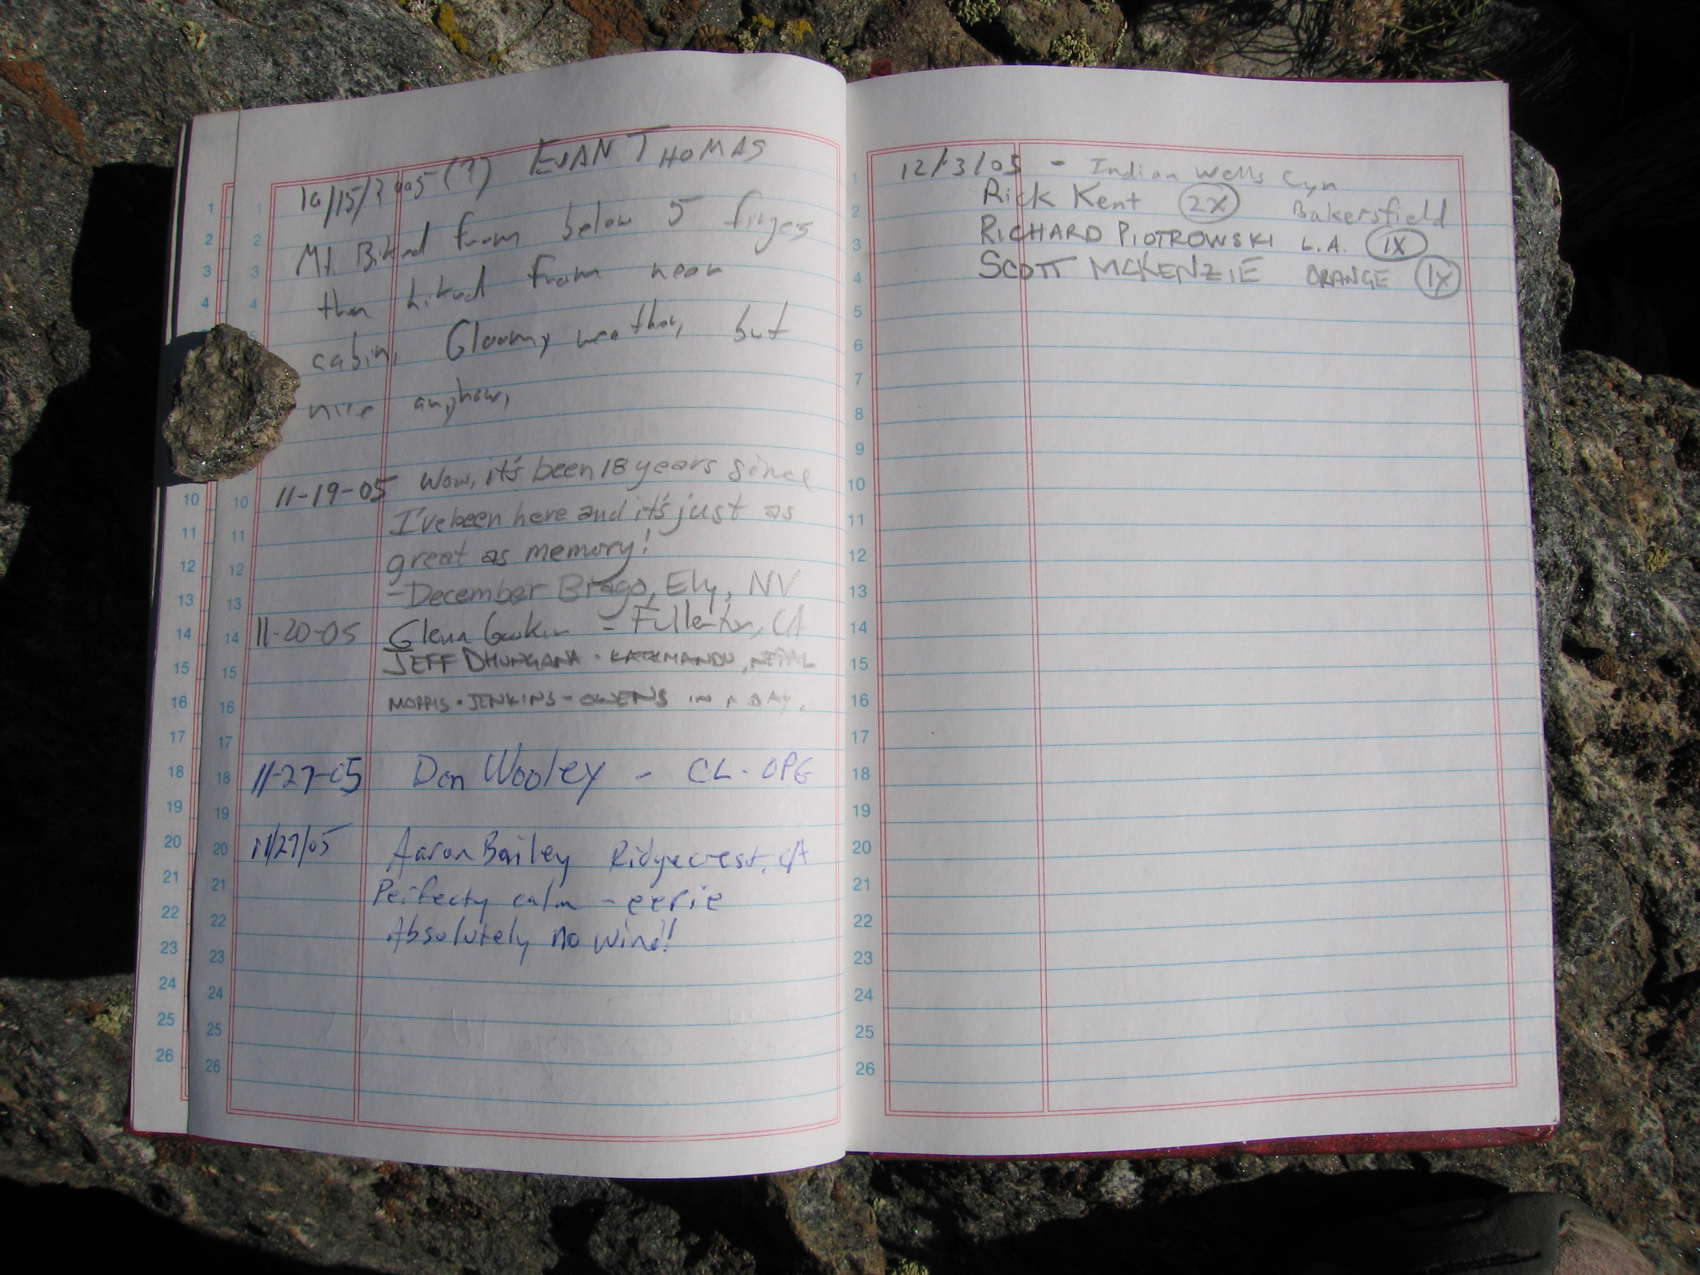 10/15/2005 (?) EVAN THOMAS
Mt. Biked from below 5 finges
then hiked from near
cabin. Gloomy weather, but
nice anyhow,
11-19-05 Wow, it's been 18 years since
I've been here and it's just as
great as memory!
-December Brago, Ely, NV
11-20-05 Glenn - Fullerton, CA
JEFF DHUNGANA - KATKMANDU, NEPAL
MORRIS - JENKINS - OWENS IN A DAY.
11-27-05 Don Wooley - CL-OPG
11/27/05 Aaron Bailey Ridgecrest, CA
Perfecty calm - eerie
Absolutely no wind!
12/3/05 - Indian Wells Cyn
Rick Kent 2X Bakersfield
RICHARD PIOTROWSKI L.A. 1X
SCOTT MCKENZIE ORANGE 1X
1 2 3 4 10 11 12 13 14 15 16 17 18 19 20 21 22 23 24 25 26
1 2 3 4 10 11 12 13 14 15 16 17 18 19 20 21 22 23 24 25 26
1 2 3 4 5 6 7 8 9 10 11 12 13 14 15 16 17 18 19 20 21 22 23 24 25 26